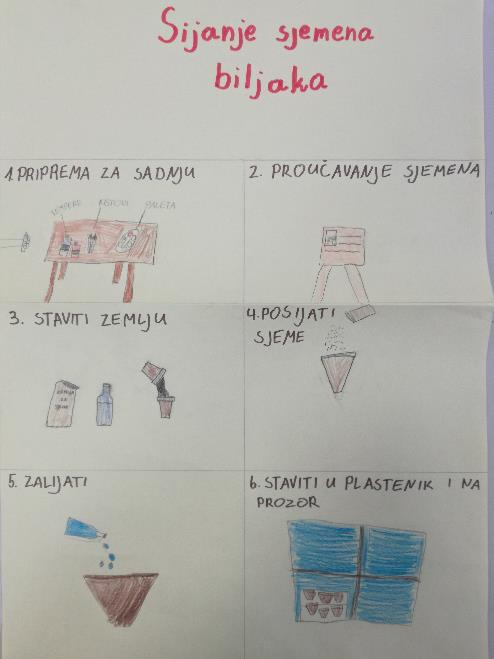 Sijanje sjemena
biljaka
1. PRIPREMA ZA SADNJU
TEMPERE
KISTOVI
PALETA
2. PROUČAVANJE SJEMENA
3. STAVITI ZEMLJU
ZEMLJA
ZA
4. POSIJATI
SJEME
5. ZALIJATI
6. STAVITI U PLASTENIK I NA
PROZOR